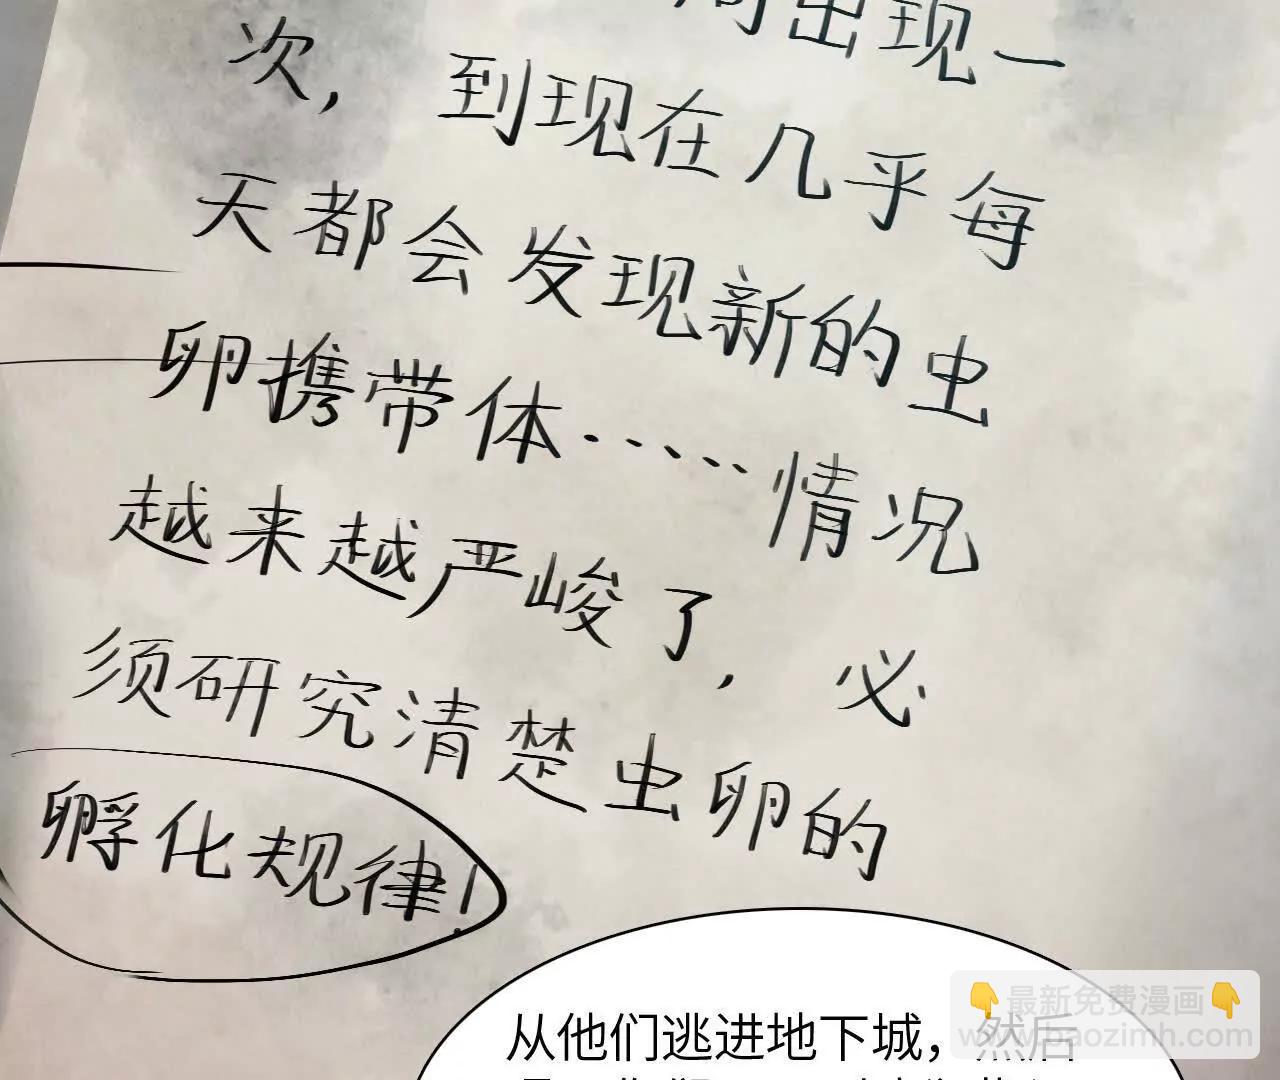 周出现一
次，到现在几乎每
天都会发现新的虫
卵携带体……情况
越来越严峻了，必
须研究清楚虫卵的
孵化规律！
从他们逃进地下城，然后
👇最新免费漫画👇
www.baozimh.com